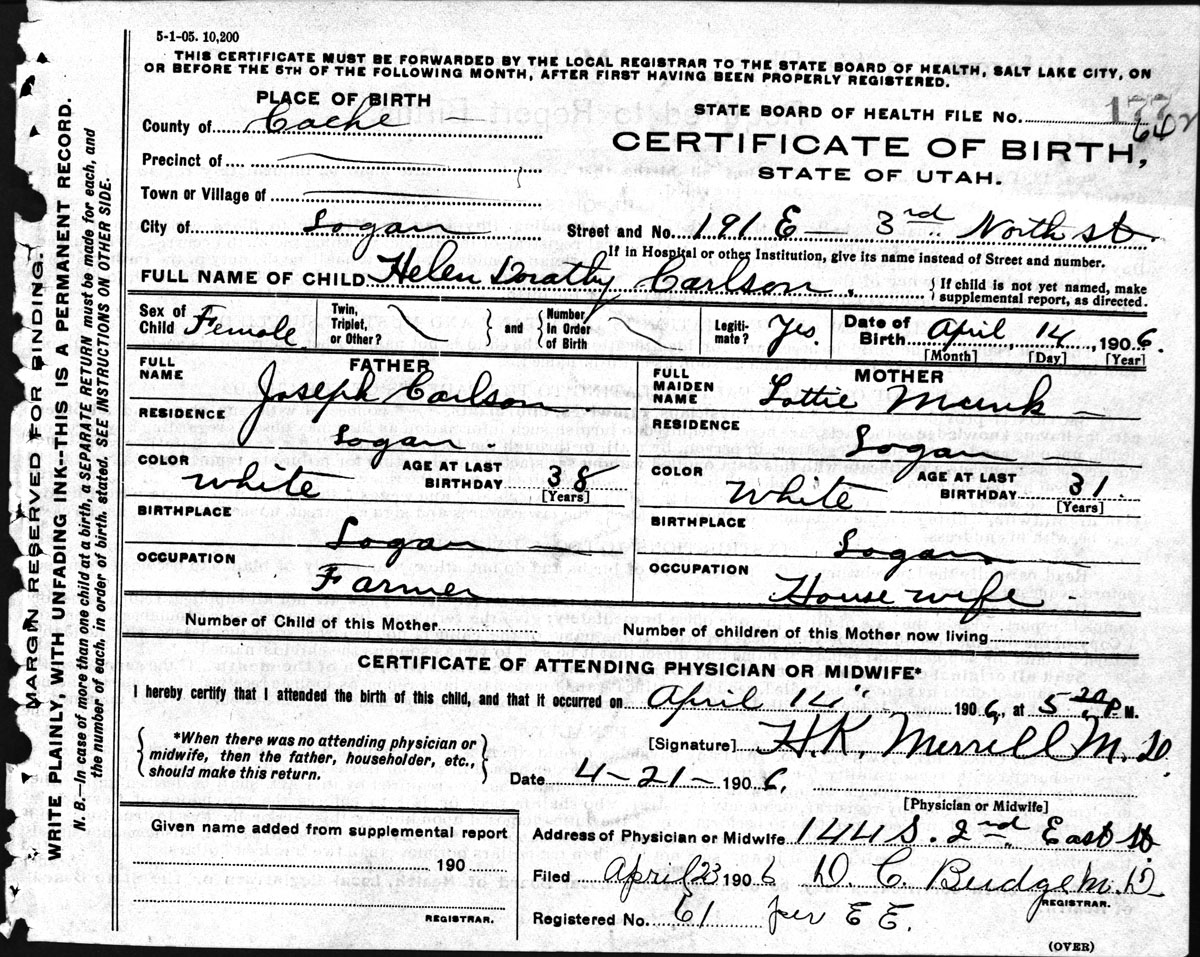 5-1-05. 10,200
THIS CERTIFICATE MUST BE FORWARDED BY THE LOCAL REGISTRAR TO THE STATE BOARD OF HEALTH, SALT LAKE CITY, ON
OR BEFORE THE 5TH OF THE FOLLOWING MONTH, AFTER FIRST HAVING BEEN PROPERLY REGISTERED.
PLACE OF BIRTH
County of Cache
Precinct of
Town or Village of
City of Logan
STATE BOARD OF HEALTH FILE No. 177
642
CERTIFICATE OF BIRTH,
STATE OF UTAH.
Street and No. 191 E 3rd North st.
If in Hospital or other Institution, give its name instead of Street and number.
FULL NAME OF CHILD Helen Dorathy Carlson. { If child is not yet named, make supplemental report, as directed.
Sex of Child Female
Twin, Triplet, or Other? } and { Number in Order of Birth
Legitimate? Yes.
Date of Birth April, 14, 1906.
[Month] [Day] [Year]
FATHER
FULL NAME Joseph Carlson
RESIDENCE Logan.
COLOR White
AGE AT LAST BIRTHDAY 38
[Years]
BIRTHPLACE Logan
OCCUPATION Farmer
MOTHER
FULL MAIDEN NAME Lottie Munk
RESIDENCE Logan
COLOR White
AGE AT LAST BIRTHDAY 31.
[Years]
BIRTHPLACE Logan.
OCCUPATION House wife
Number of Child of this Mother
Number of children of this Mother now living
CERTIFICATE OF ATTENDING PHYSICIAN OR MIDWIFE*
I hereby certify that I attended the birth of this child, and that it occurred on April 14" 1906, at 5 20 P M.
{ *When there was no attending physician or midwife, then the father, householder, etc., should make this return. }
[Signature] H.K. Merrill M.D.
Date 4-21- 1906.
[Physician or Midwife]
Given name added from supplemental report
190
REGISTRAR.
Address of Physician or Midwife 144 S. 2nd East st.
Filed April 23 1906 D. C. Budge M.D
REGISTRAR.
Registered No. 61 per E E.
(OVER)
MARGIN RESERVED FOR BINDING.
WRITE PLAINLY, WITH UNFADING INK---THIS IS A PERMANENT RECORD.
N. B.—In case of more than one child at a birth, a SEPARATE RETURN must be made for each, and
the number of each, in order of birth, stated. SEE INSTRUCTIONS ON OTHER SIDE.